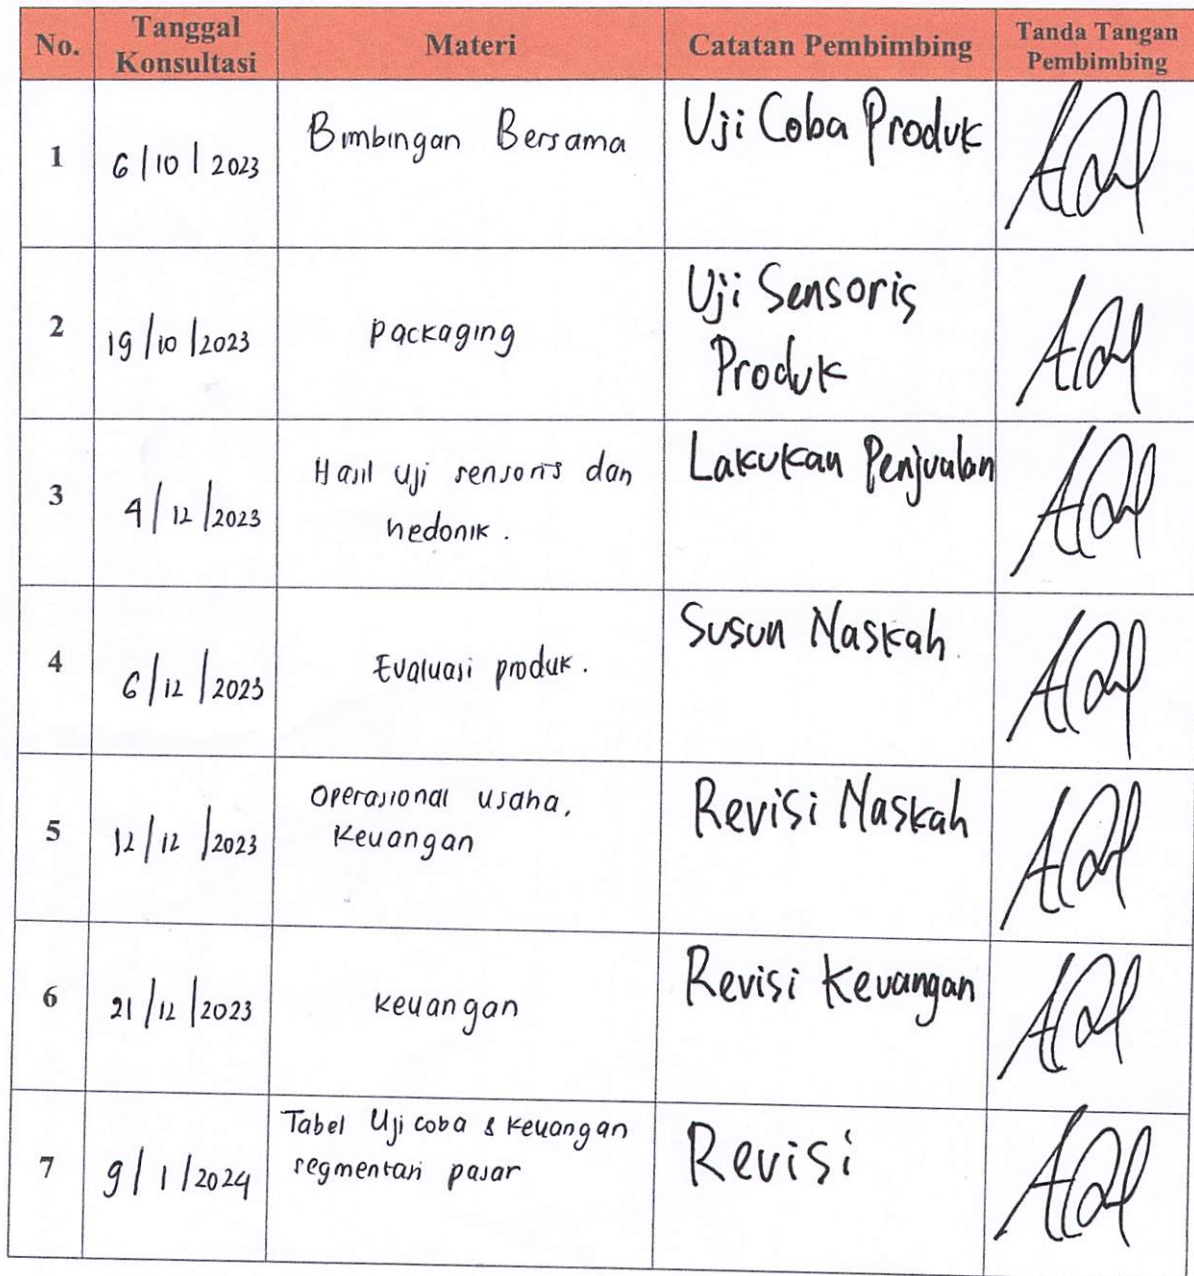 No. Tanggal Konsultasi Materi Catatan Pembimbing Tanda Tangan Pembimbing
1 6/10/2023 Bimbingan Bersama Uji Coba Produk
2 19/10/2023 packaging Uji Sensoris Produk
3 4/12/2023 Hasil uji sensoris dan hedonik. Lakukan Penjualan
4 6/12/2023 Evaluasi produk. Susun Naskah
5 12/12/2023 Operasional usaha, keuangan Revisi Naskah
6 21/12/2023 keuangan Revisi Keuangan
7 9/1/2024 Tabel Uji coba & keuangan segmentasi pasar Revisi